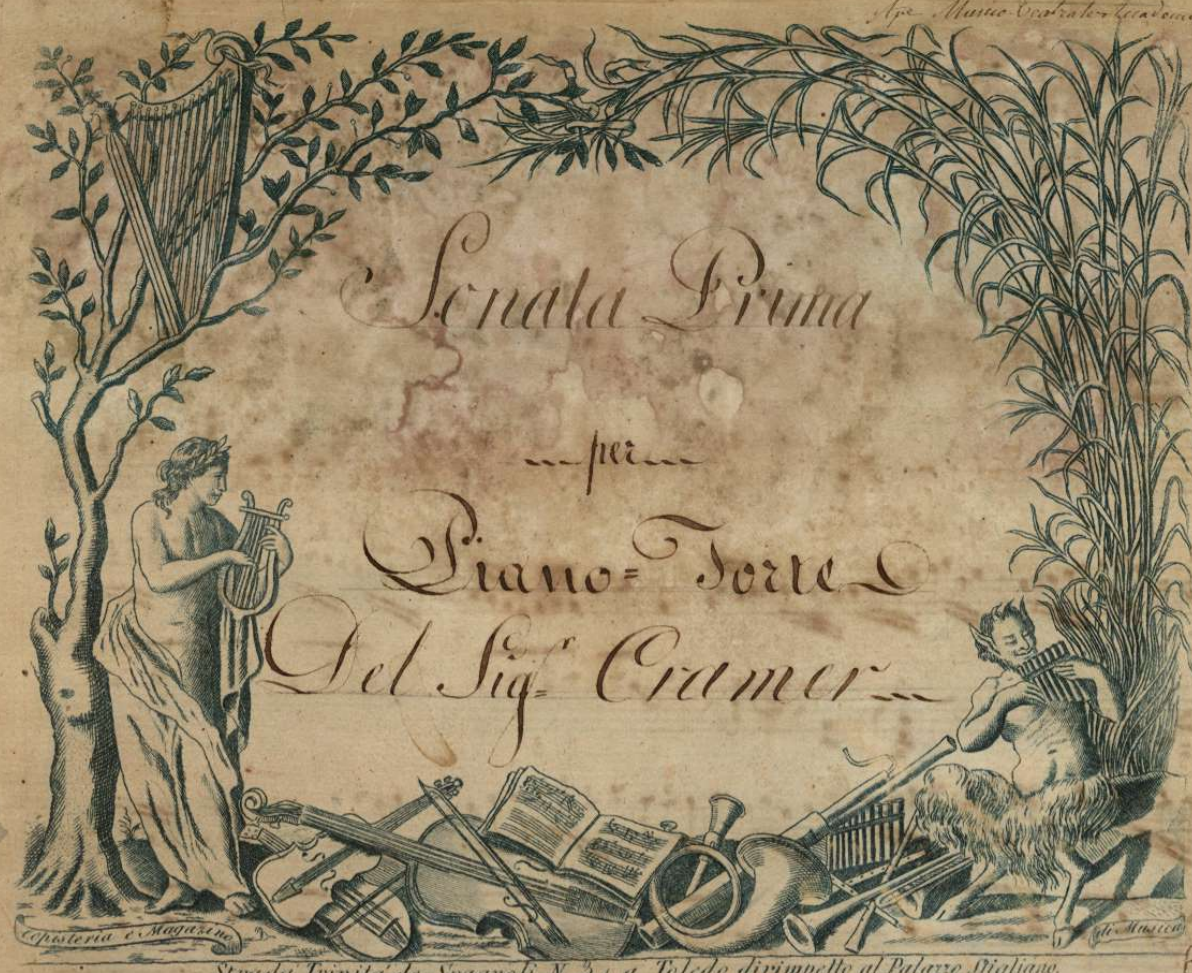 Ape Musico-Teatrale
Sonata Prima
per
Piano=Forte
Del Sigr. Cramer
Copisteria e Magazino
di Musica
Strada Trinità de Spagnoli N.º a Toledo dirimpetto al Palazzo Stigliano